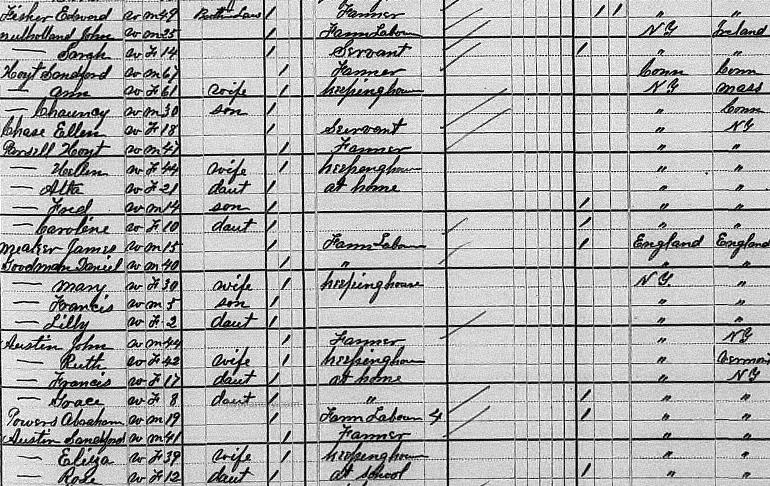 Fisher Edward W M 49 Farmer 1 1 " "
Mulholland John W M 25 1 Farm Labour NY Ireland
— Sarah W F 14 1 Servant 1 " "
Hoyt Sandford W M 67 1 Farmer Conn Conn
— Ann W F 61 wife 1 keepinghouse NY Mass
— Chauncy W M 30 son 1 " Conn
Chase Ellen W F 18 1 Servant " NY
Persell Hoyt W M 47 1 Farmer " "
— Hellen W F 44 wife 1 keepinghouse " "
— Alta W F 21 daut 1 at home " "
— Fred W M 14 son 1 1 " "
— Caroline W F 10 daut 1 1 " "
Meaker James W M 15 1 Farm Labour 1 England England
Goodman Daniel W M 40 1 " " "
— Mary W F 30 wife 1 keepinghouse NY "
— Francis W M 5 son 1 " "
— Lilly W F 2 daut 1 " "
Austin John W M 44 1 Farmer " NY
— Ruth W F 42 wife 1 keepinghouse " Vermont
— Francis W F 17 daut 1 at home " NY
— Grace W F 8 daut 1 " 1 " "
Powers Abraham W M 19 1 Farm Labour 4 1 " "
Austin Sandford W M 41 1 Farmer " "
— Eliza W F 39 wife 1 keepinghouse " "
— Rose W F 12 daut 1 at school 1 " "